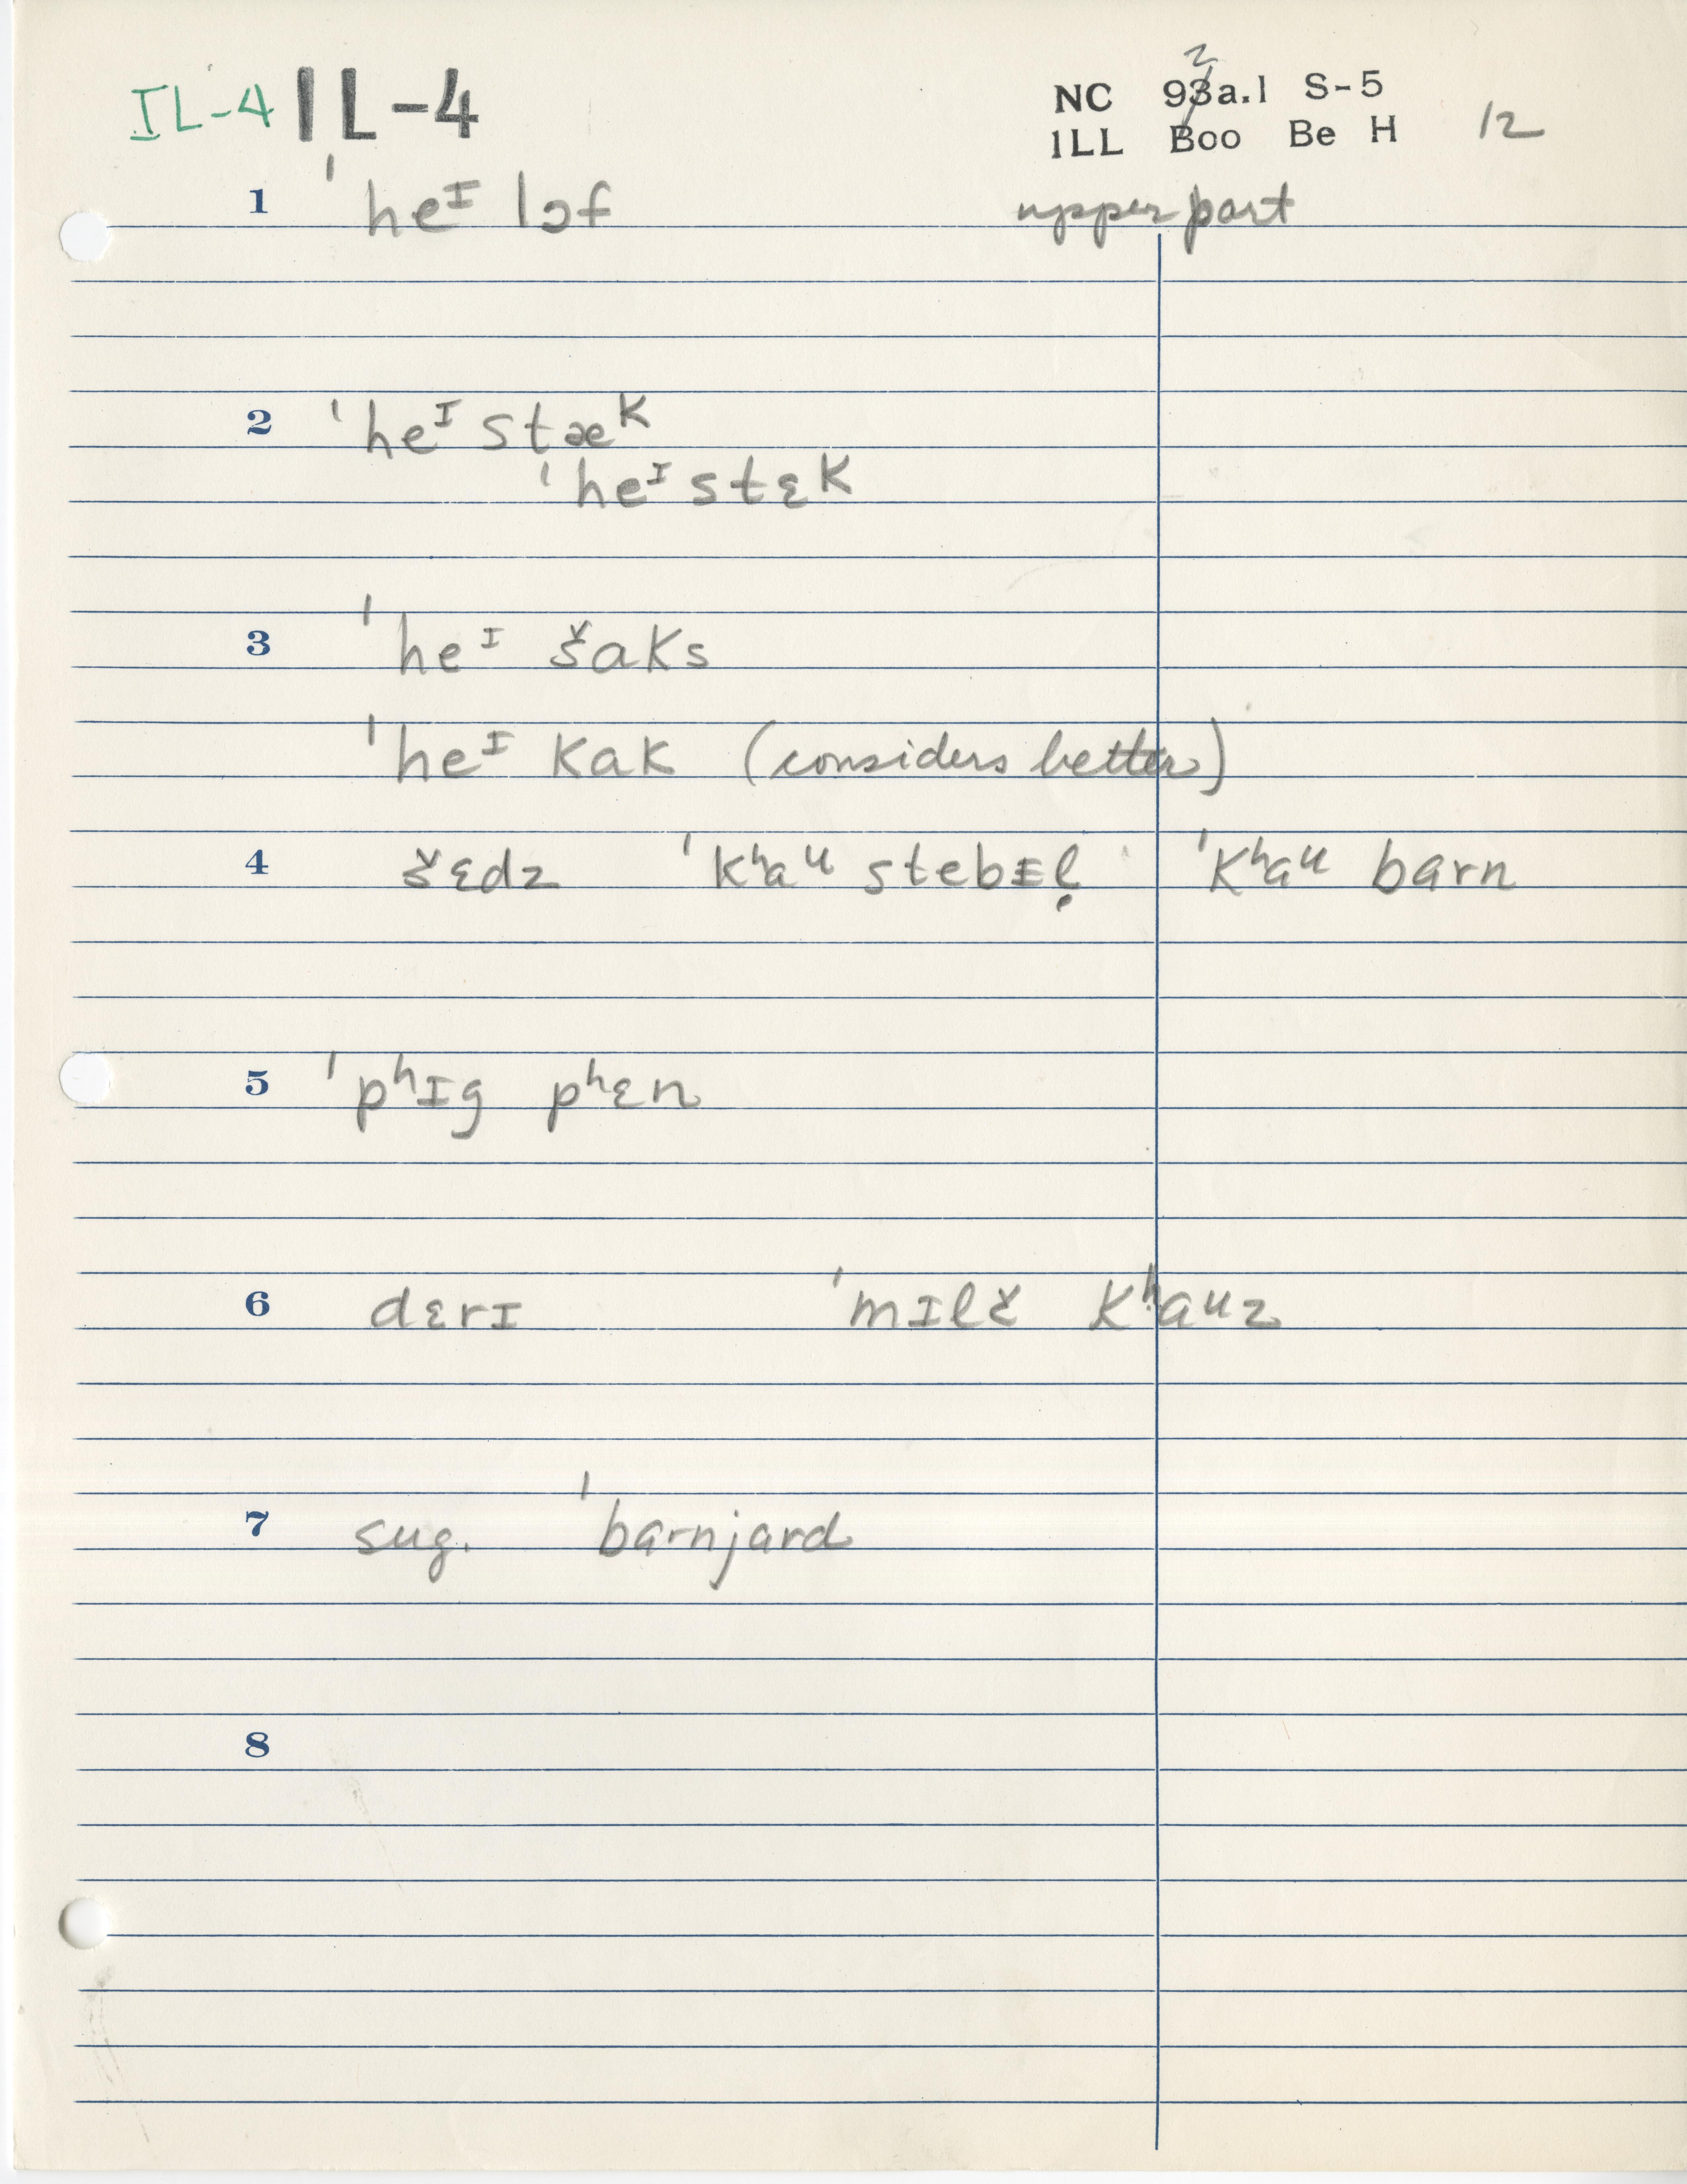 IL-4 IL-4 NC 93a.1 S-5
2
ILL Boo Be H 12
1 ˈheᴵ lɔf upper part
2 ˈheᴵ stæᴷ
ˈheᴵ stɛK
3 ˈheᴵ šaKs
ˈheᴵ KaK (considers better)
4 šɛdz ˈKʰaᵘ stebɪl̩ ˈKʰaᵘ barn
5 ˈpʰɪg pʰɛn
6 dɛrɪ ˈmɪlč Kʰaᵘz
7 sug. ˈbarnjard
8